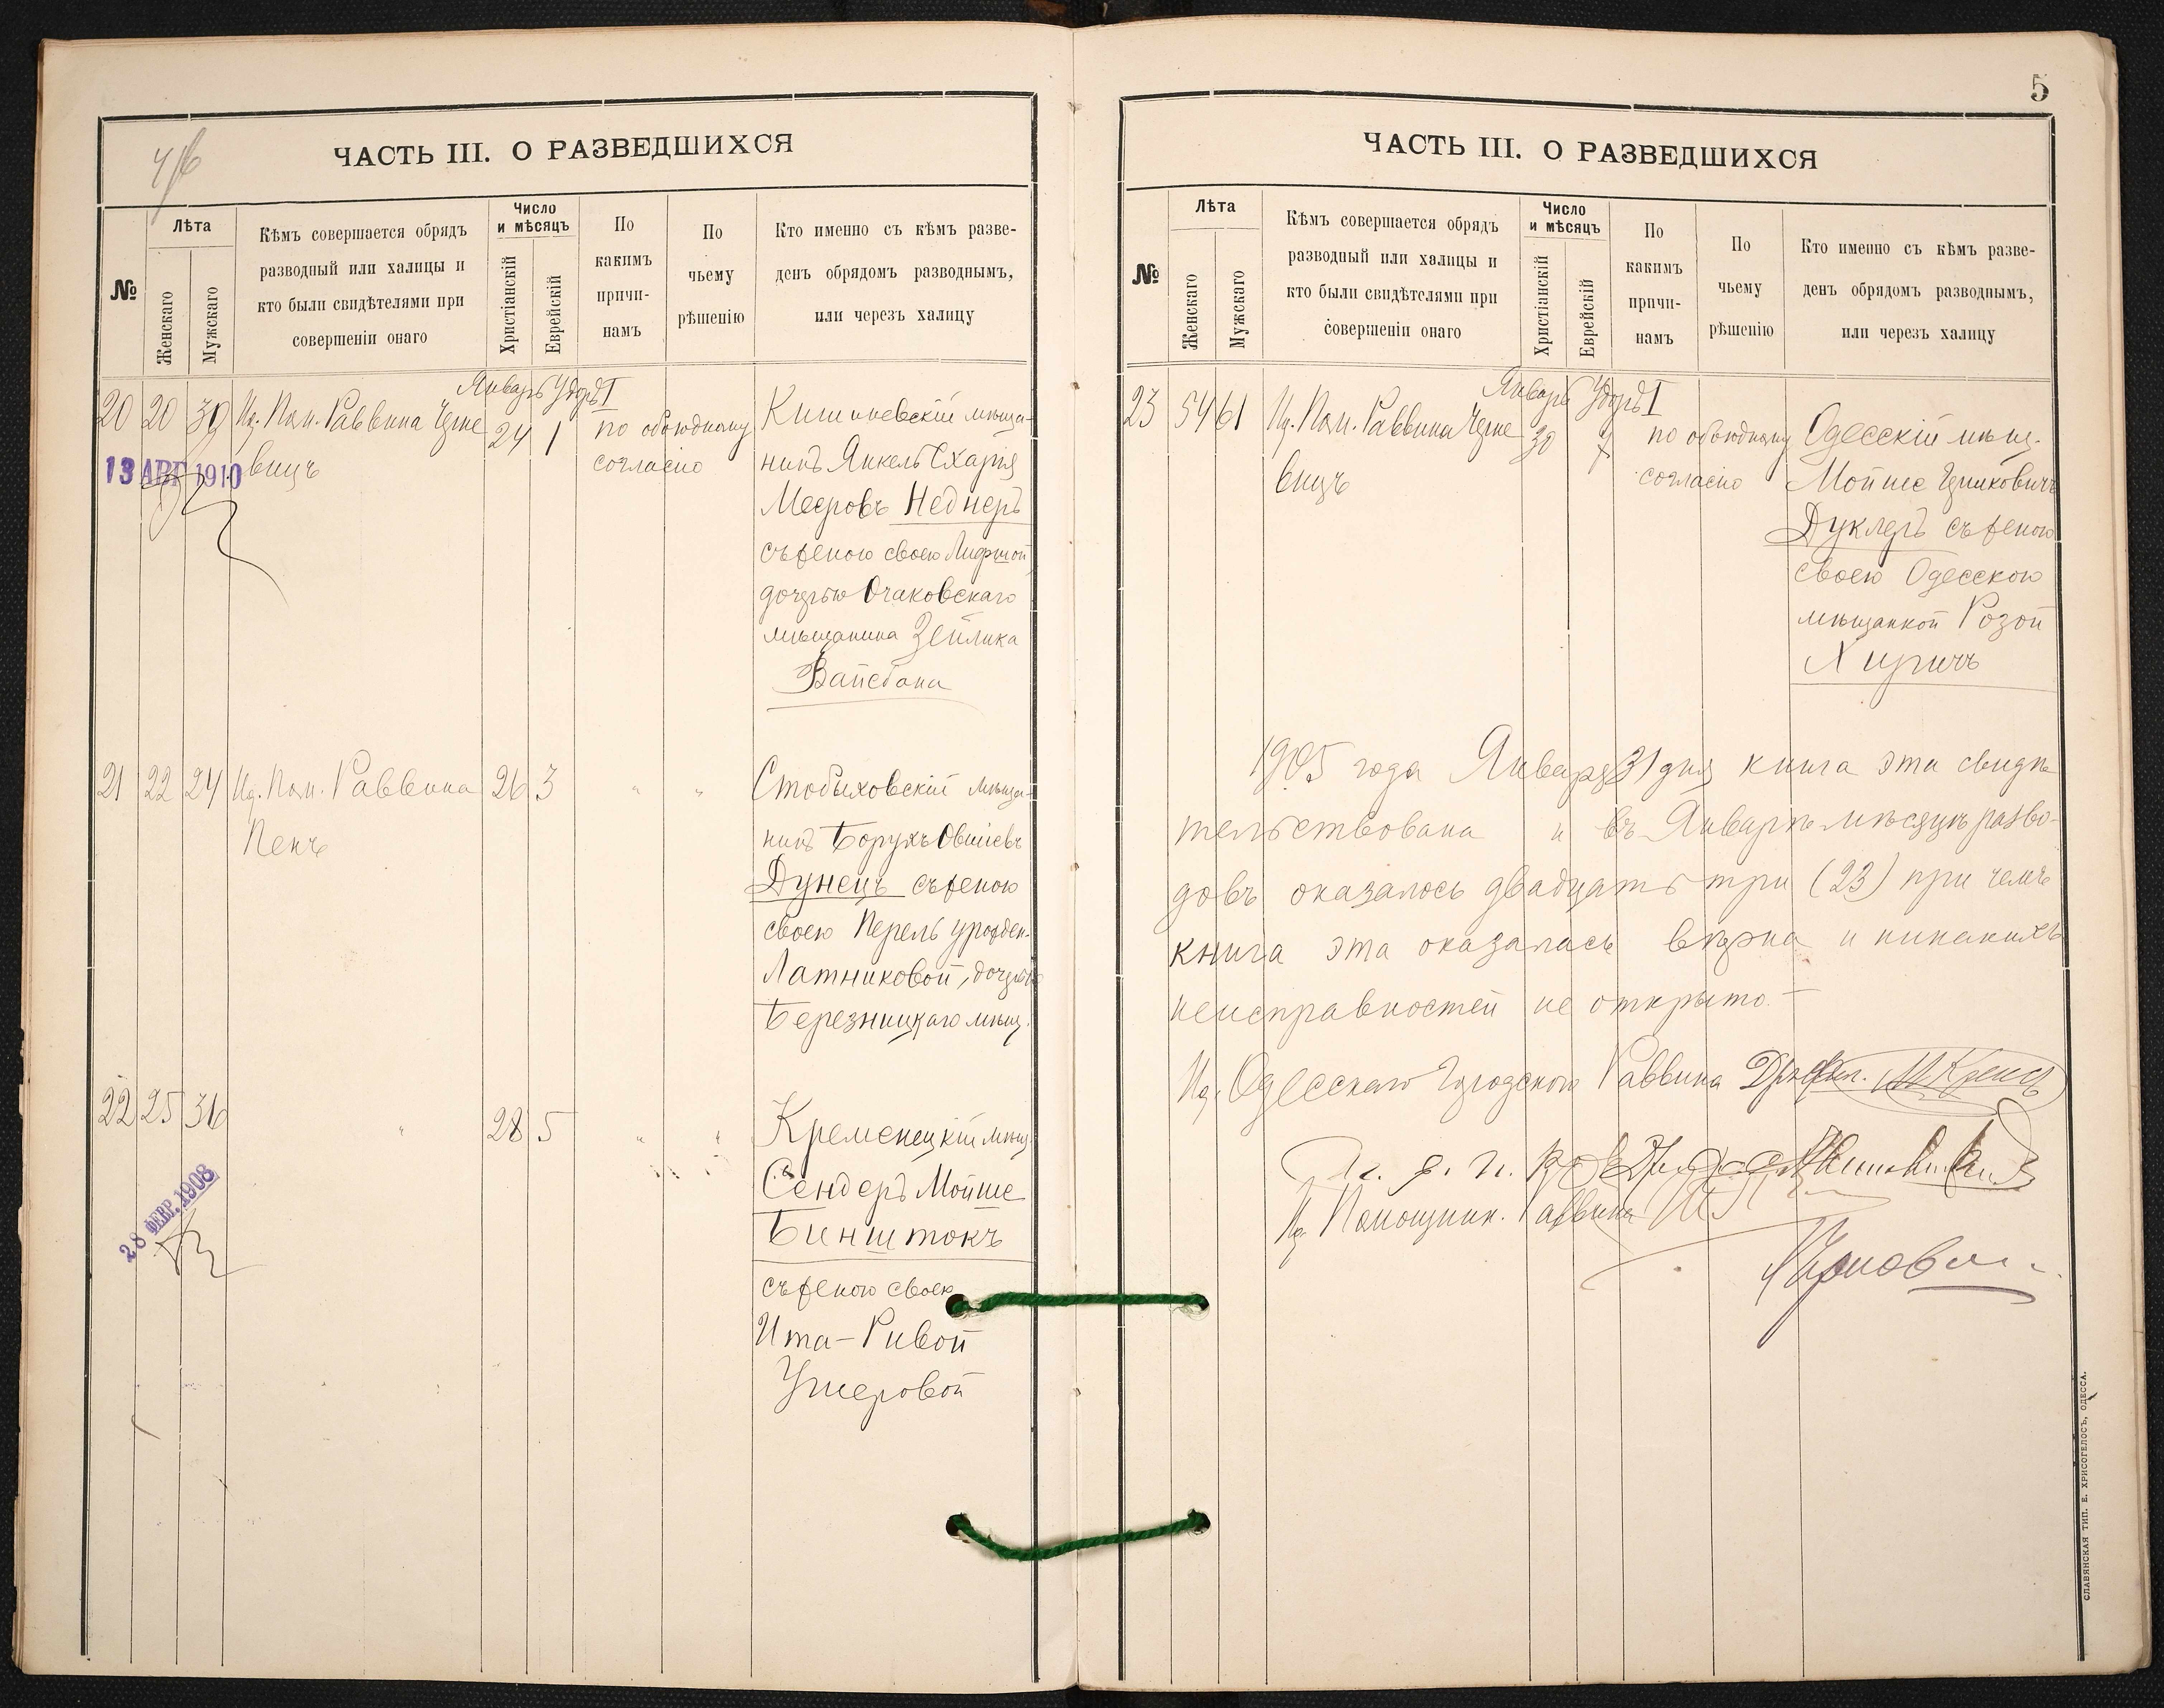 ЧАСТЬ III. О РАЗВЕДШИХСЯ
№
Лѣта
Женскаго
Мужскаго
Кѣмъ совершается обрядъ
разводный или халицы и
кто были свидѣтелями при
совершеніи онаго
Число
и мѣсяцъ
Христіанскій
Еврейскій
По
какимъ
причи-
намъ
По
чьему
рѣшенію
Кто именно съ кѣмъ разве-
денъ обрядомъ разводнымъ,
или черезъ халицу
Январь Удоръ I
20 20 39 Ид. Пом. Раввина Черне
вицъ
24 1
по обоюдному
согласію
Кишиневскій мѣща-
нинъ Янкель Схарія
Мееровъ Неднеръ
съ женою своею Лифшой
дочерью Очаковскаго
мѣщанина Зейлика
13 АВГ 1910
21 22 24 Ид. Пом. Раввина
Пенъ
26 3 " "
Стобыховскій мѣща-
нинъ Борухъ Овшіевъ
Дунецъ съ женою
своею Перель урожден.
Латниковой, дочерью
Березницкаго мѣщ.
22 25 36 " 28 5 " "
Кременецкій мѣщ.
Сендеръ Мойше
Бинштокъ
съ женою своею
Ита-Ривой
Ушеровой
28 ФЕВР. 1908
5
ЧАСТЬ III. О РАЗВЕДШИХСЯ
№
Лѣта
Женскаго
Мужскаго
Кѣмъ совершается обрядъ
разводный или халицы и
кто были свидѣтелями при
совершеніи онаго
Число
и мѣсяцъ
Христіанскій
Еврейскій
По
какимъ
причи-
намъ
По
чьему
рѣшенію
Кто именно съ кѣмъ разве-
денъ обрядомъ разводнымъ,
или черезъ халицу
Январь Удоръ I
23 54 61 Ид. Пом. Раввина Черне
вицъ
30 7
по обоюдному
согласію
Одесскій мѣщ.
Мойше
Дуклеръ съ женою
своею Одесскою
мѣщанкой Розой
1905 года Января 31 дня книга эта свидѣ
тельствована и въ Январѣ мѣсяцѣ разво-
довъ оказалось двадцать три (23) при чемъ
книга эта оказалась вѣрна и никакихъ
неисправностей не открыто. —
Ид. Одесскаго Городского Раввина
Ид. Помощник. Раввина
СЛАВЯНСКАЯ ТИП. Е. ХРИСОГЕЛОСЪ, ОДЕССА.